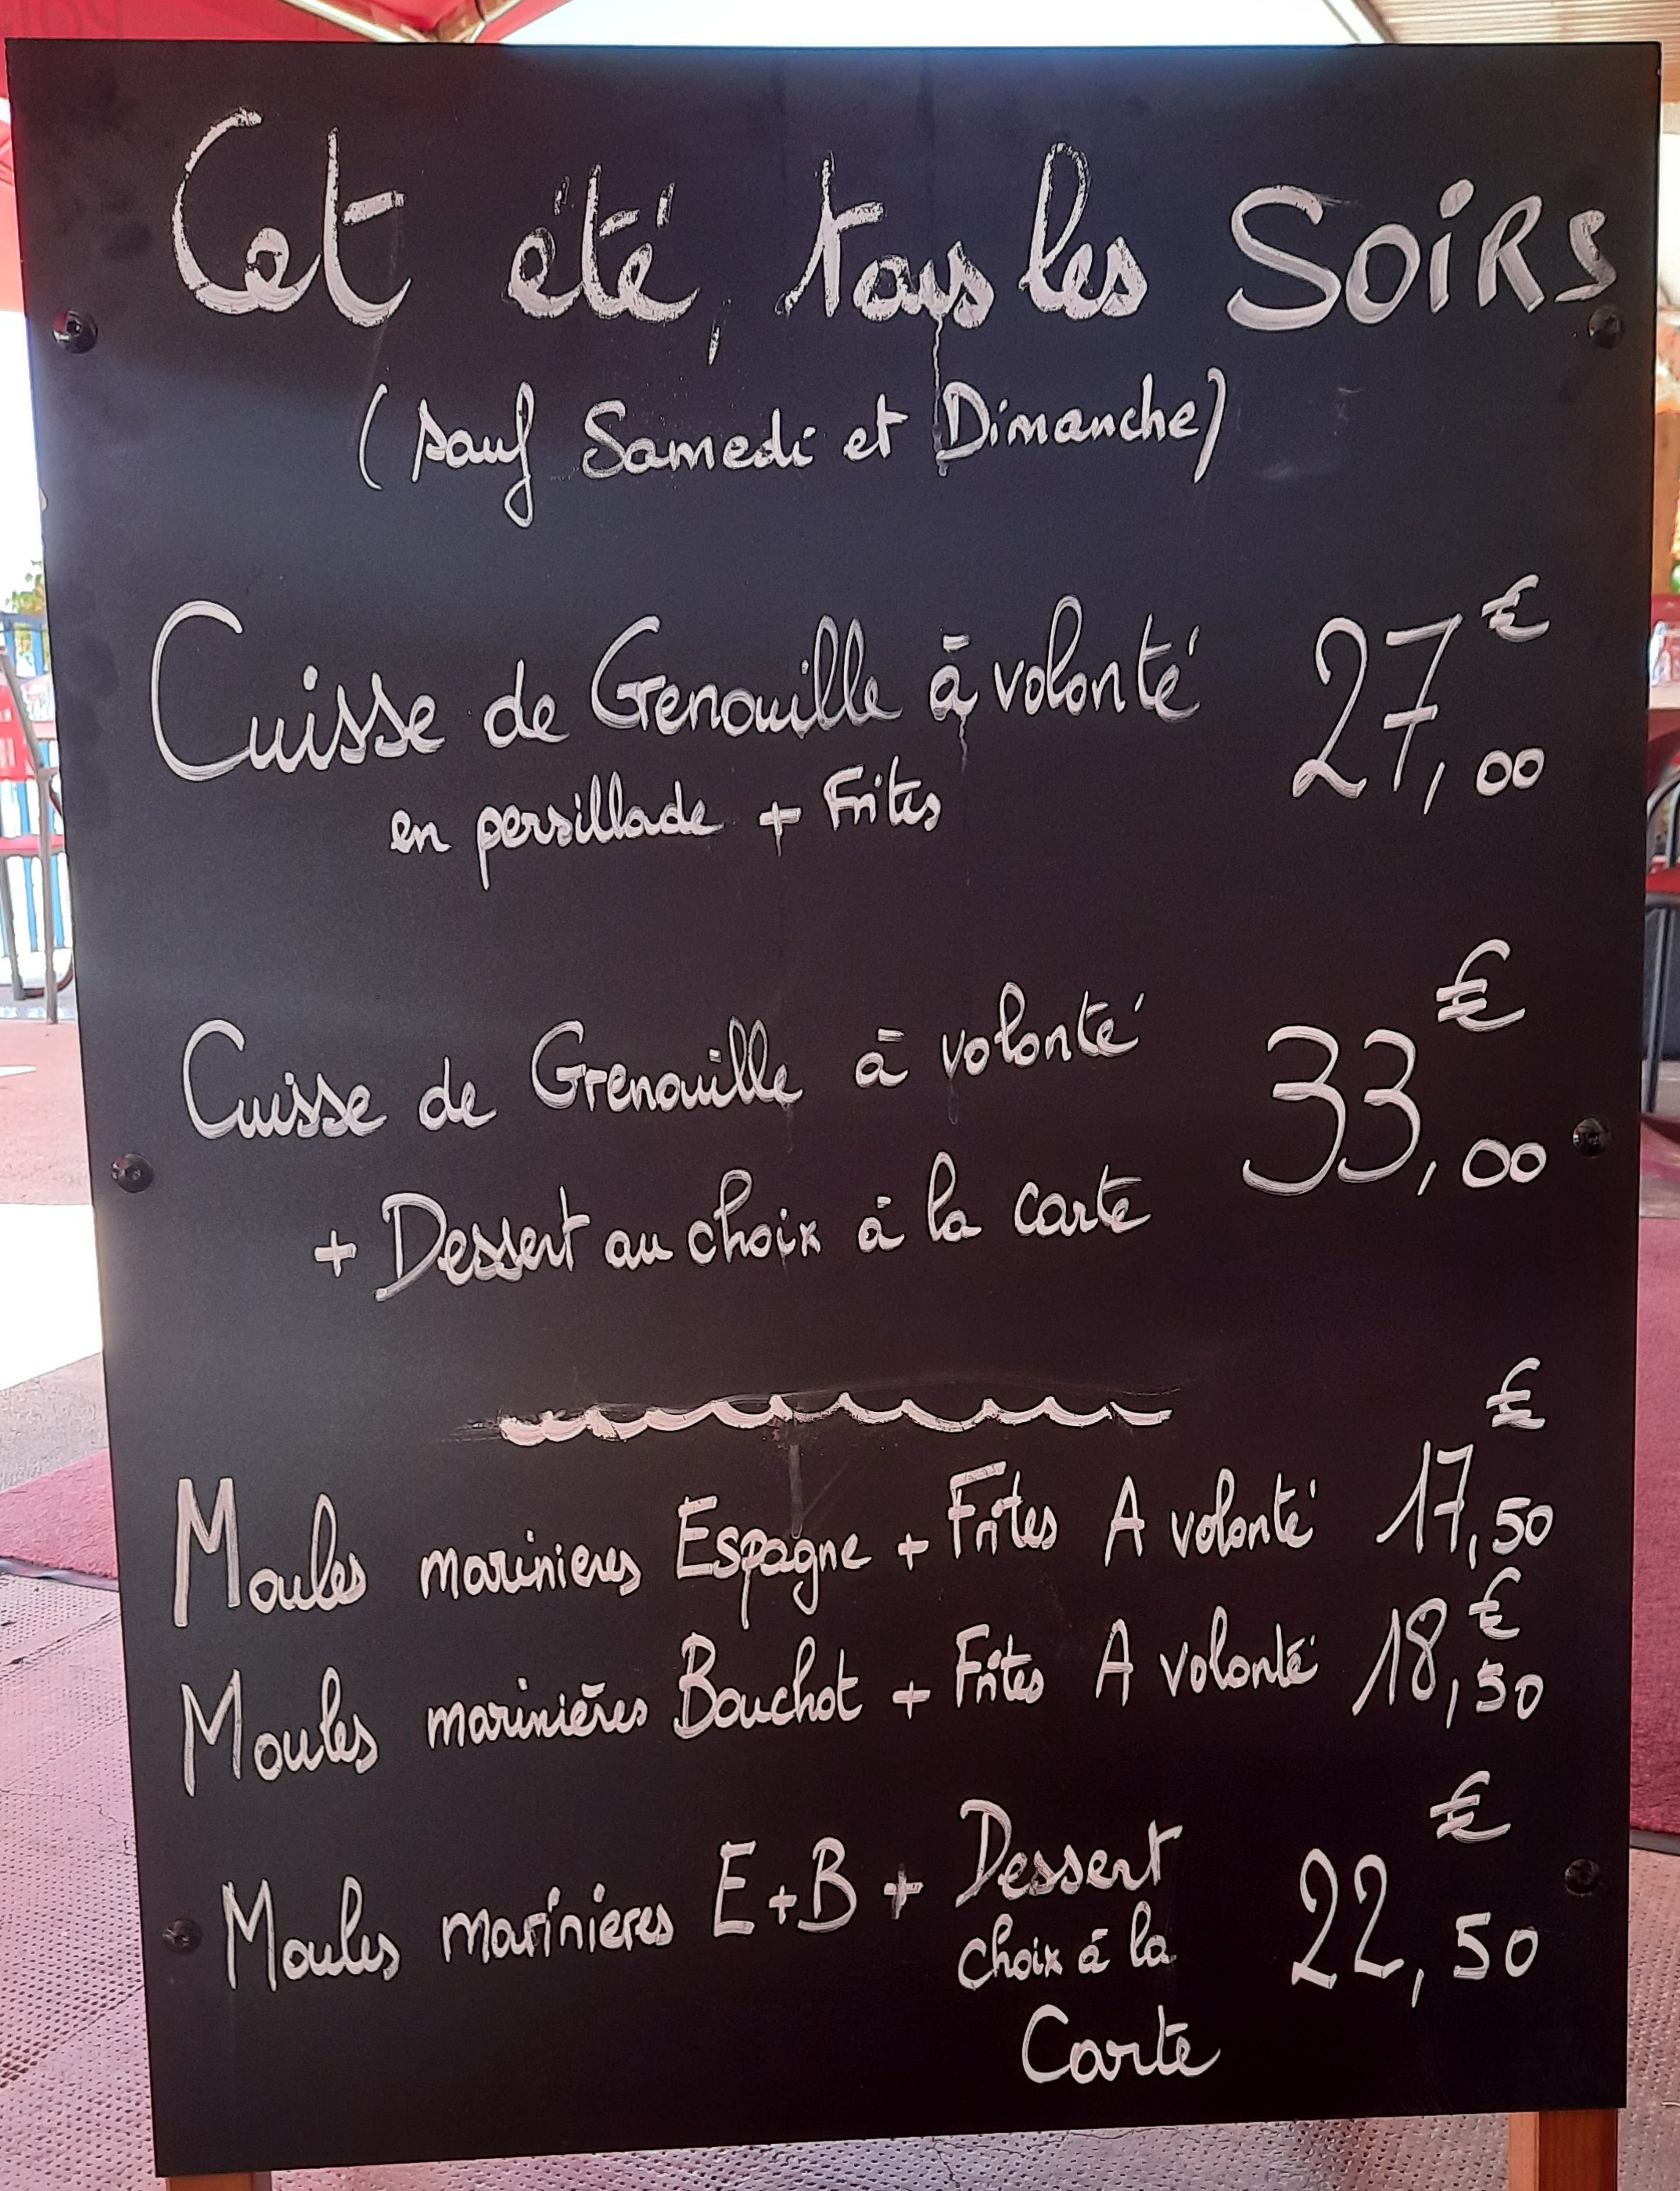 Cet été, tous les SOIRS
(sauf Samedi et Dimanche)
Cuisse de Grenouille à volonté 27,00 €
en persillade + Frites
Cuisse de Grenouille à volonté 33,00 €
+ Dessert au choix à la carte
Moules marinieres Espagne + Frites A volonté 17,50 €
Moules marinières Bouchot + Frites A volonté 18,50 €
Moules marinières E+B + Dessert 22,50 €
choix à la
Carte